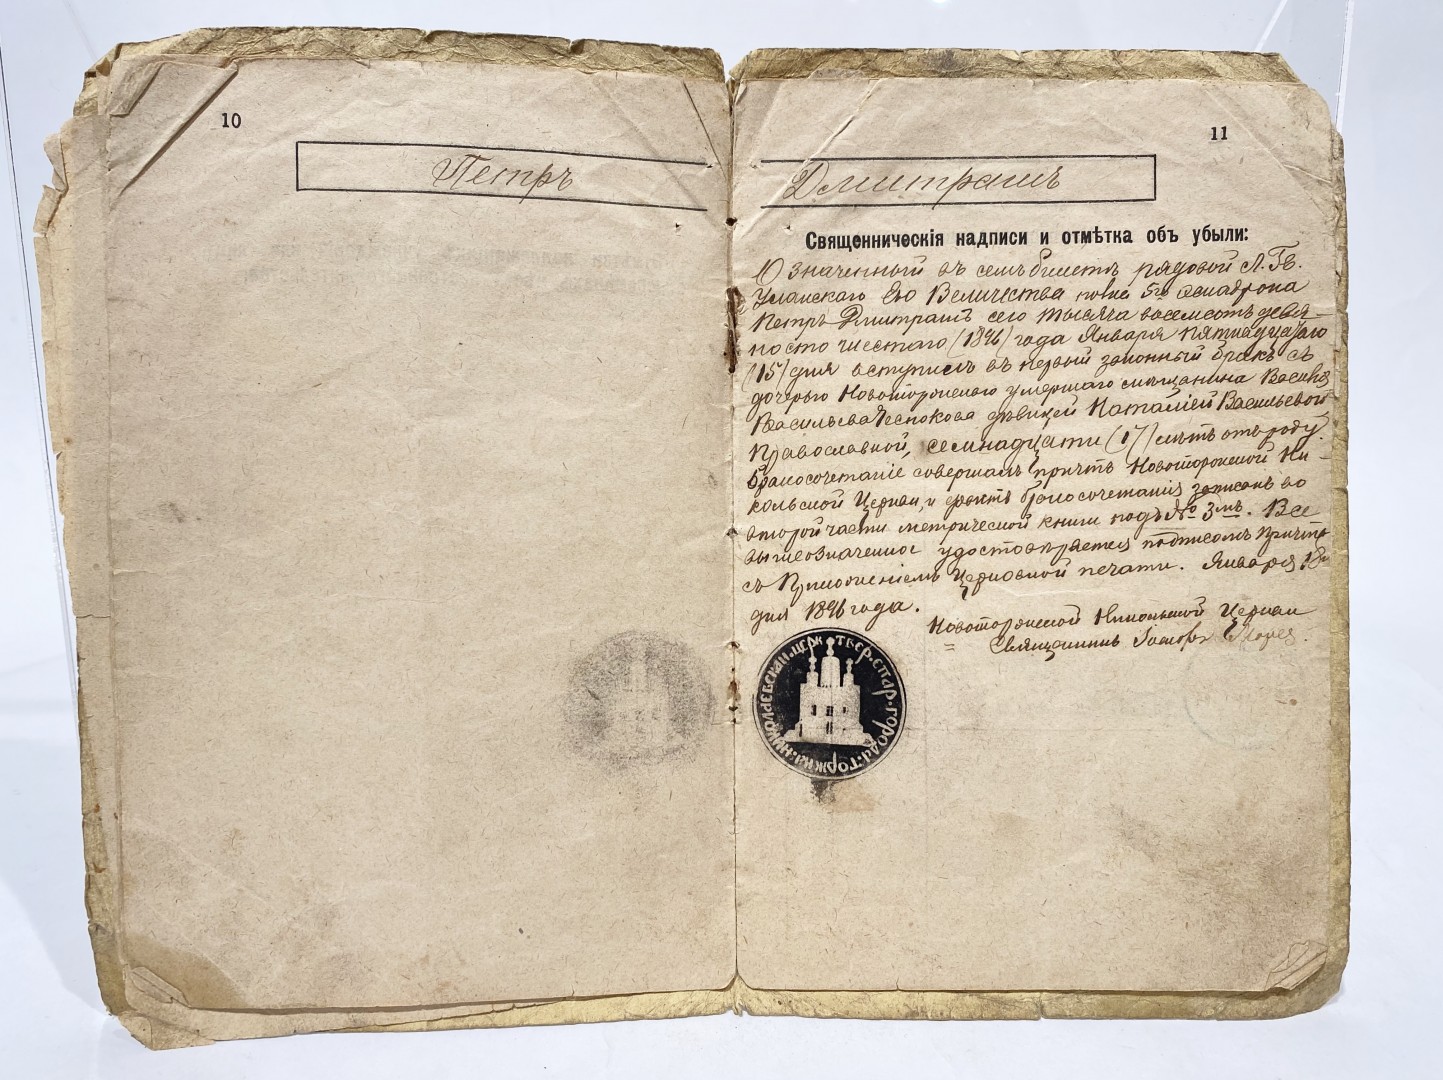 10
11
Петръ
Дмитрашъ
Священническія надписи и отмѣтка объ убыли:
Означенный въ семъ билетѣ рядовой Л. Гв.
Уланскаго Его Величества полка 5го эскадрона
Петръ Дмитрашъ сего тысяча восемьсотъ девя-
носто шестаго (1896) года Января пятнадцатаго
(15) дня вступилъ въ первый законный бракъ съ
дочерью Новоторжскаго умершаго мѣщанина
Васильева дѣвицей Наталіей Васильевой
Православной, семнадцати (17) лѣтъ отъ роду.
Бракосочетаніе совершалъ причтъ Новоторжской Ни-
кольской Церкви, и фактъ бракосочетанія записанъ во
второй части метрической книги подъ № 3мъ. Все
вышеозначенное удостовѣряется подписомъ Причта
съ приложеніемъ Церковной печати. Января 18
дня 1896 года.
Новоторжской Никольской Церкви
Священникъ
николаевскаи. церк. твер. епар. города. торжка